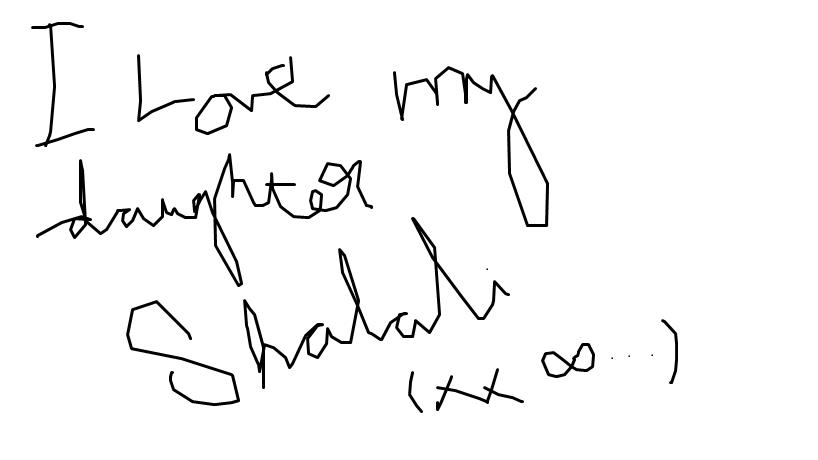 I Love my
daughter
Shalali
(xx ∞ ...)